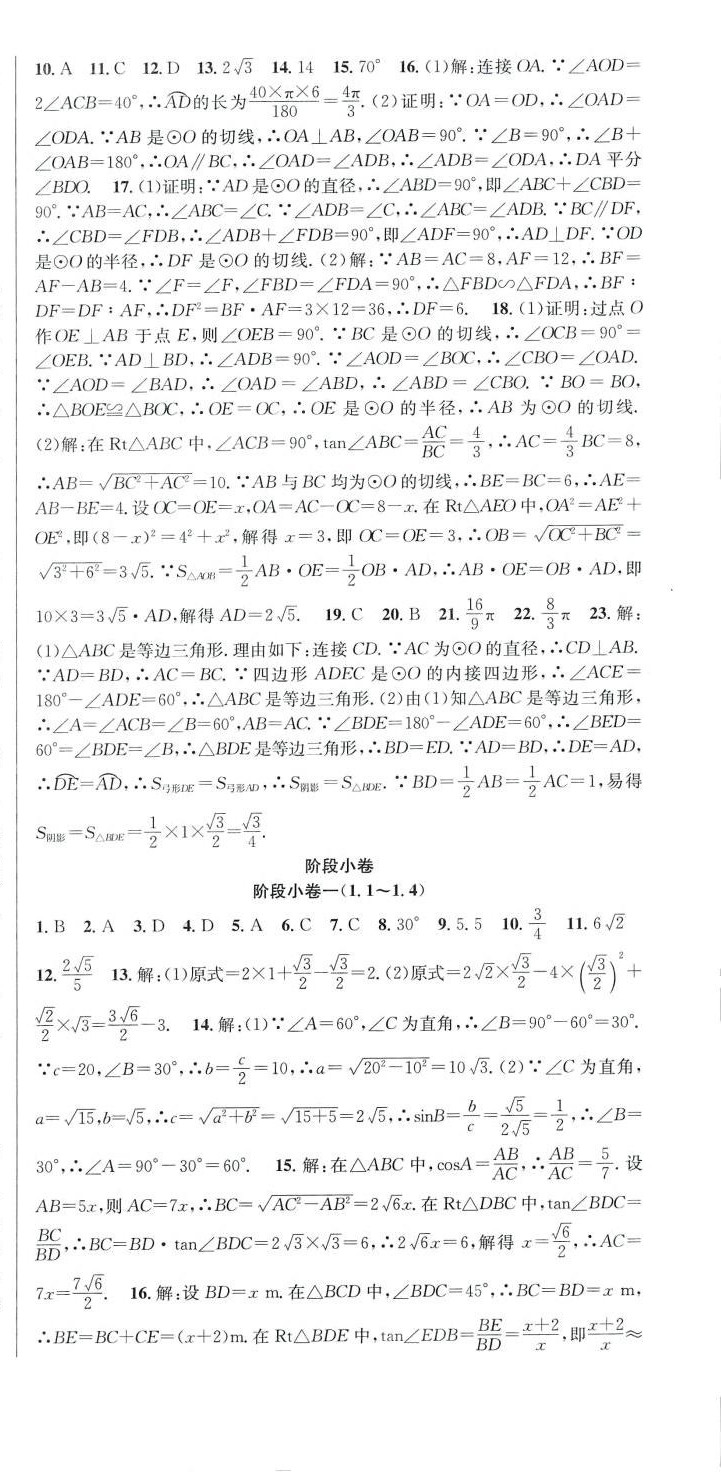 10. A　11. C　12. D　13. 2√3　14. 14　15. 70°　16. (1)解:连接OA. ∵∠AOD=
2∠ACB=40°,∴A͡D的长为(40×π×6)/180=4π/3. (2)证明:∵OA=OD,∴∠OAD=
∠ODA. ∵AB是⊙O的切线,∴OA⊥AB,∠OAB=90°. ∵∠B=90°,∴∠B+
∠OAB=180°,∴OA∥BC,∴∠OAD=∠ADB,∴∠ADB=∠ODA,∴DA平分
∠BDO.　17. (1)证明:∵AD是⊙O的直径,∴∠ABD=90°,即∠ABC+∠CBD=
90°. ∵AB=AC,∴∠ABC=∠C. ∵∠ADB=∠C,∴∠ABC=∠ADB. ∵BC∥DF,
∴∠CBD=∠FDB,∴∠ADB+∠FDB=90°,即∠ADF=90°,∴AD⊥DF. ∵OD
是⊙O的半径,∴DF是⊙O的切线. (2)解:∵AB=AC=8,AF=12,∴BF=
AF-AB=4. ∵∠F=∠F,∠FBD=∠FDA=90°,∴△FBD∽△FDA,∴BF∶
DF=DF∶AF,∴DF²=BF·AF=3×12=36,∴DF=6.　18. (1)证明:过点O
作OE⊥AB于点E,则∠OEB=90°. ∵BC是⊙O的切线,∴∠OCB=90°=
∠OEB. ∵AD⊥BD,∴∠ADB=90°. ∵∠AOD=∠BOC,∴∠CBO=∠OAD.
∵∠AOD=∠BAD,∴∠OAD=∠ABD,∴∠ABD=∠CBO. ∵BO=BO,
∴△BOE≌△BOC,∴OE=OC,∴OE是⊙O的半径,∴AB为⊙O的切线.
(2)解:在Rt△ABC中,∠ACB=90°,tan∠ABC=AC/BC=4/3,∴AC=4/3BC=8,
∴AB=√(BC²+AC²)=10. ∵AB与BC均为⊙O的切线,∴BE=BC=6,∴AE=
AB-BE=4. 设OC=OE=x,OA=AC-OC=8-x. 在Rt△AEO中,OA²=AE²+
OE²,即(8-x)²=4²+x²,解得x=3,即OC=OE=3,∴OB=√(OC²+BC²)=
√(3²+6²)=3√5. ∵S△AOB=1/2AB·OE=1/2OB·AD,∴AB·OE=OB·AD,即
10×3=3√5·AD,解得AD=2√5.　19. C　20. B　21. 16/9π　22. 8/3π　23. 解:
(1)△ABC是等边三角形. 理由如下:连接CD. ∵AC为⊙O的直径,∴CD⊥AB.
∵AD=BD,∴AC=BC. ∵四边形ADEC是⊙O的内接四边形,∴∠ACE=
180°-∠ADE=60°,∴△ABC是等边三角形. (2)由(1)知△ABC是等边三角形,
∴∠A=∠ACB=∠B=60°,AB=AC. ∵∠BDE=180°-∠ADE=60°,∴∠BED=
60°=∠BDE=∠B,∴△BDE是等边三角形,∴BD=ED. ∵AD=BD,∴DE=AD,
∴D͡E=A͡D,∴S弓形DE=S弓形AD,∴S阴影=S△BDE. ∵BD=1/2AB=1/2AC=1,易得
S阴影=S△BDE=1/2×1×√3/2=√3/4.
阶段小卷
阶段小卷一(1.1～1.4)
1. B　2. A　3. D　4. D　5. A　6. C　7. C　8. 30°　9. 5.5　10. 3/4　11. 6√2
12. 2√5/5　13. 解:(1)原式=2×1+√3/2-√3/2=2. (2)原式=2√2×√3/2-4×(√3/2)²+
√2/2×√3=3√6/2-3.　14. 解:(1)∵∠A=60°,∠C为直角,∴∠B=90°-60°=30°.
∵c=20,∠B=30°,∴b=c/2=10,∴a=√(20²-10²)=10√3. (2)∵∠C为直角,
a=√15,b=√5,∴c=√(a²+b²)=√(15+5)=2√5,∴sinB=b/c=√5/(2√5)=1/2,∴∠B=
30°,∴∠A=90°-30°=60°.　15. 解:在△ABC中,cosA=AB/AC,∴AB/AC=5/7. 设
AB=5x,则AC=7x,∴BC=√(AC²-AB²)=2√6x. 在Rt△DBC中,tan∠BDC=
BC/BD,∴BC=BD·tan∠BDC=2√3×√3=6,∴2√6x=6,解得x=√6/2,∴AC=
7x=7√6/2.　16. 解:设BD=x m. 在△BCD中,∠BDC=45°,∴BC=BD=x m,
∴BE=BC+CE=(x+2)m. 在Rt△BDE中,tan∠EDB=BE/BD=(x+2)/x,即(x+2)/x≈